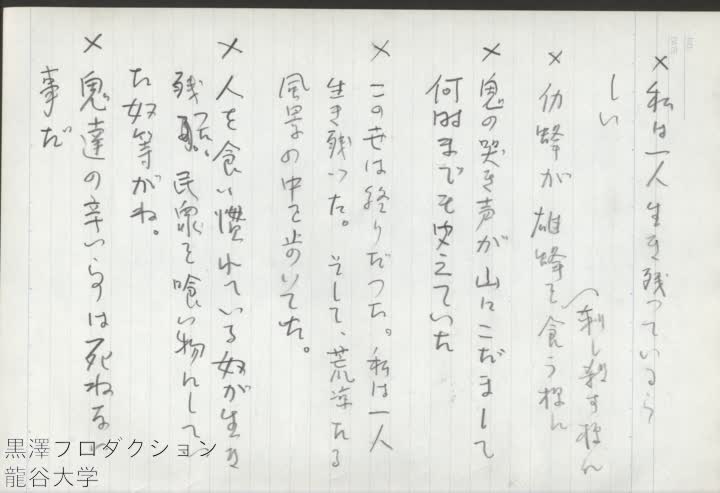 ×私は一人生き残っているら
しい
(刺し殺す様に
×働蜂が雄蜂を食う様に
×鬼の哭き声が山にこだまして
何時までも
×この世は終りだった。私は一人
生き残った。そして、荒涼たる
風景の中を歩いていた。
×人を食い慣れている奴が生き
残った、民衆を喰い物にして
た奴等がね。
×鬼達の辛いのは死ねない
事だ
黒澤プロダクション
龍谷大学